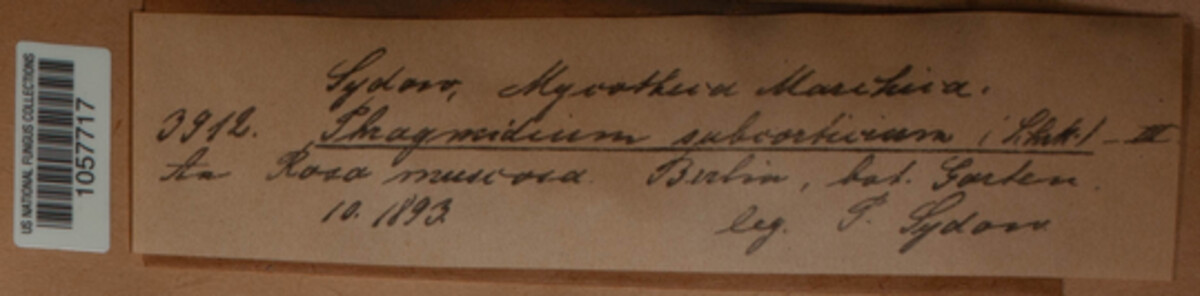 US NATIONAL FUNGUS COLLECTIONS
1057717
Sydow, Mycotheca Marchica.
3912. Phragmidium subcorticium (Schrk.) - III
An Rosa muscosa. Berlin, bot. Garten.
10. 1893. leg. P. Sydow